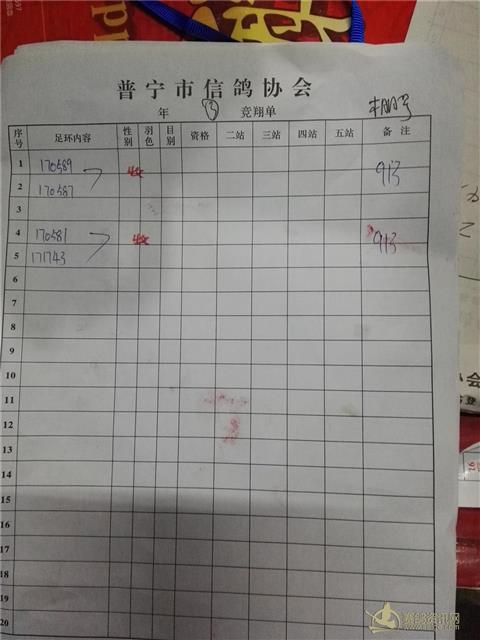 普宁市信鸽协会
年 ③ 竞翔单
序号 足环内容 性别 羽色 目别 资格 二站 三站 四站 五站 备 注
1 170589
2 170587
913
3
4 170581
5 171743
913
6
7
8
9
10
11
12
13
14
15
16
17
18
19
20
赛鸽资讯网